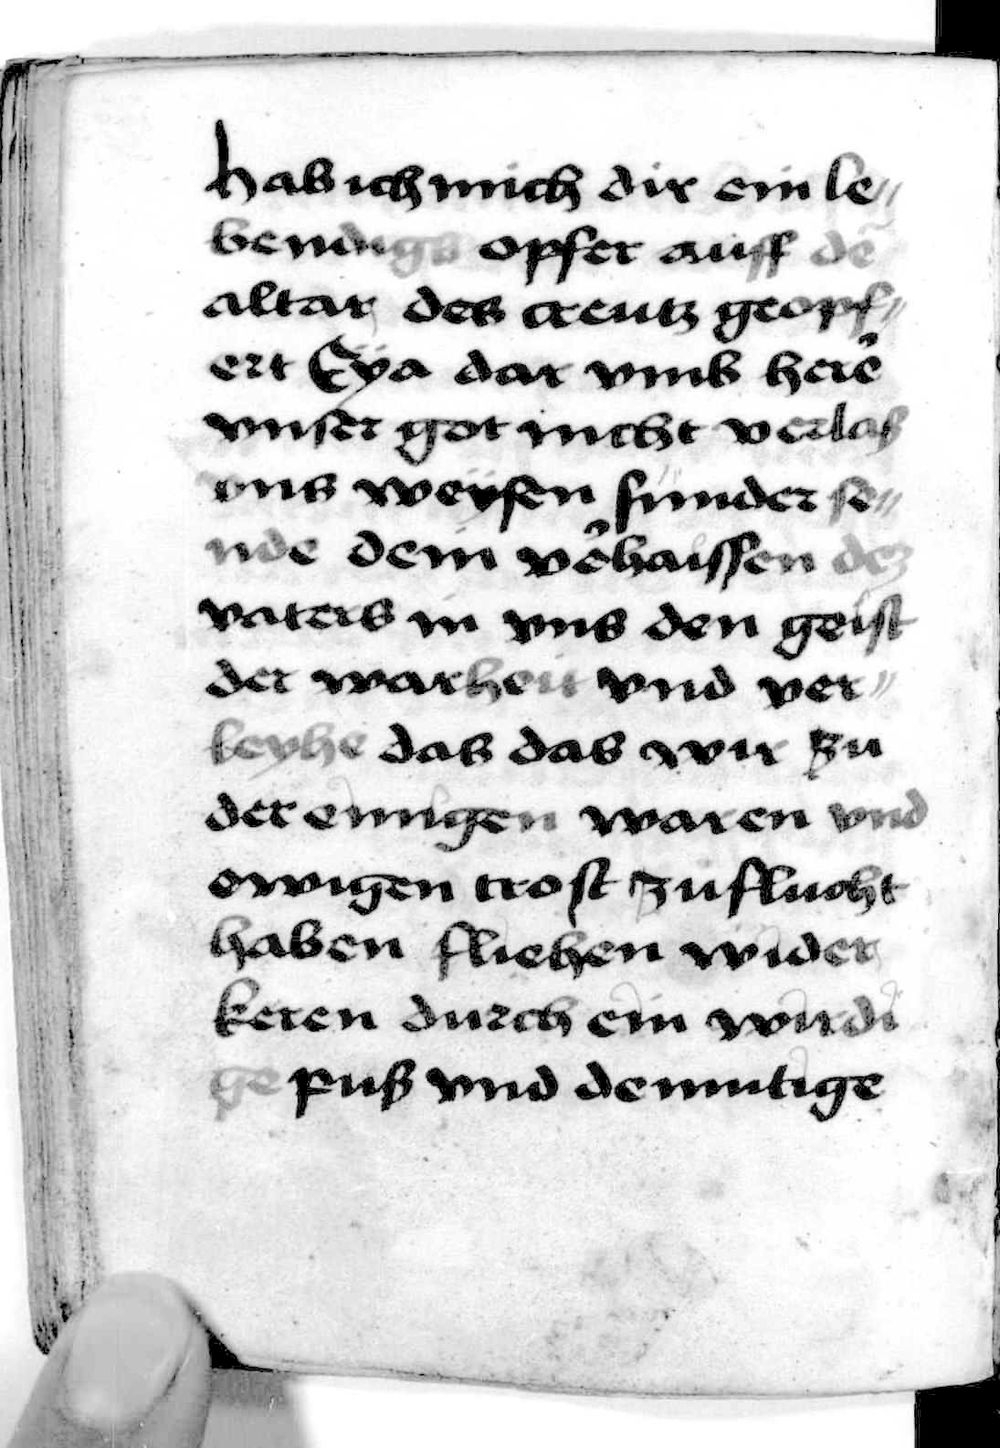 hab ich mich dir ein le⸗
bendigs opfer auff dē
altar des creutz geopf⸗
ert Eÿa dar vmb herē
vnser got nicht verlas
vns weÿsen sunder se⸗
nde dein v̉haissen dez
vaters in vns den geist
der warheit vnd ver⸗
leyhe das das wir zu
der einigen waren vnd
ewigen trost zuflucht
haben fliehen wider
keren durch ein wirdi
ge puß vnd demutige